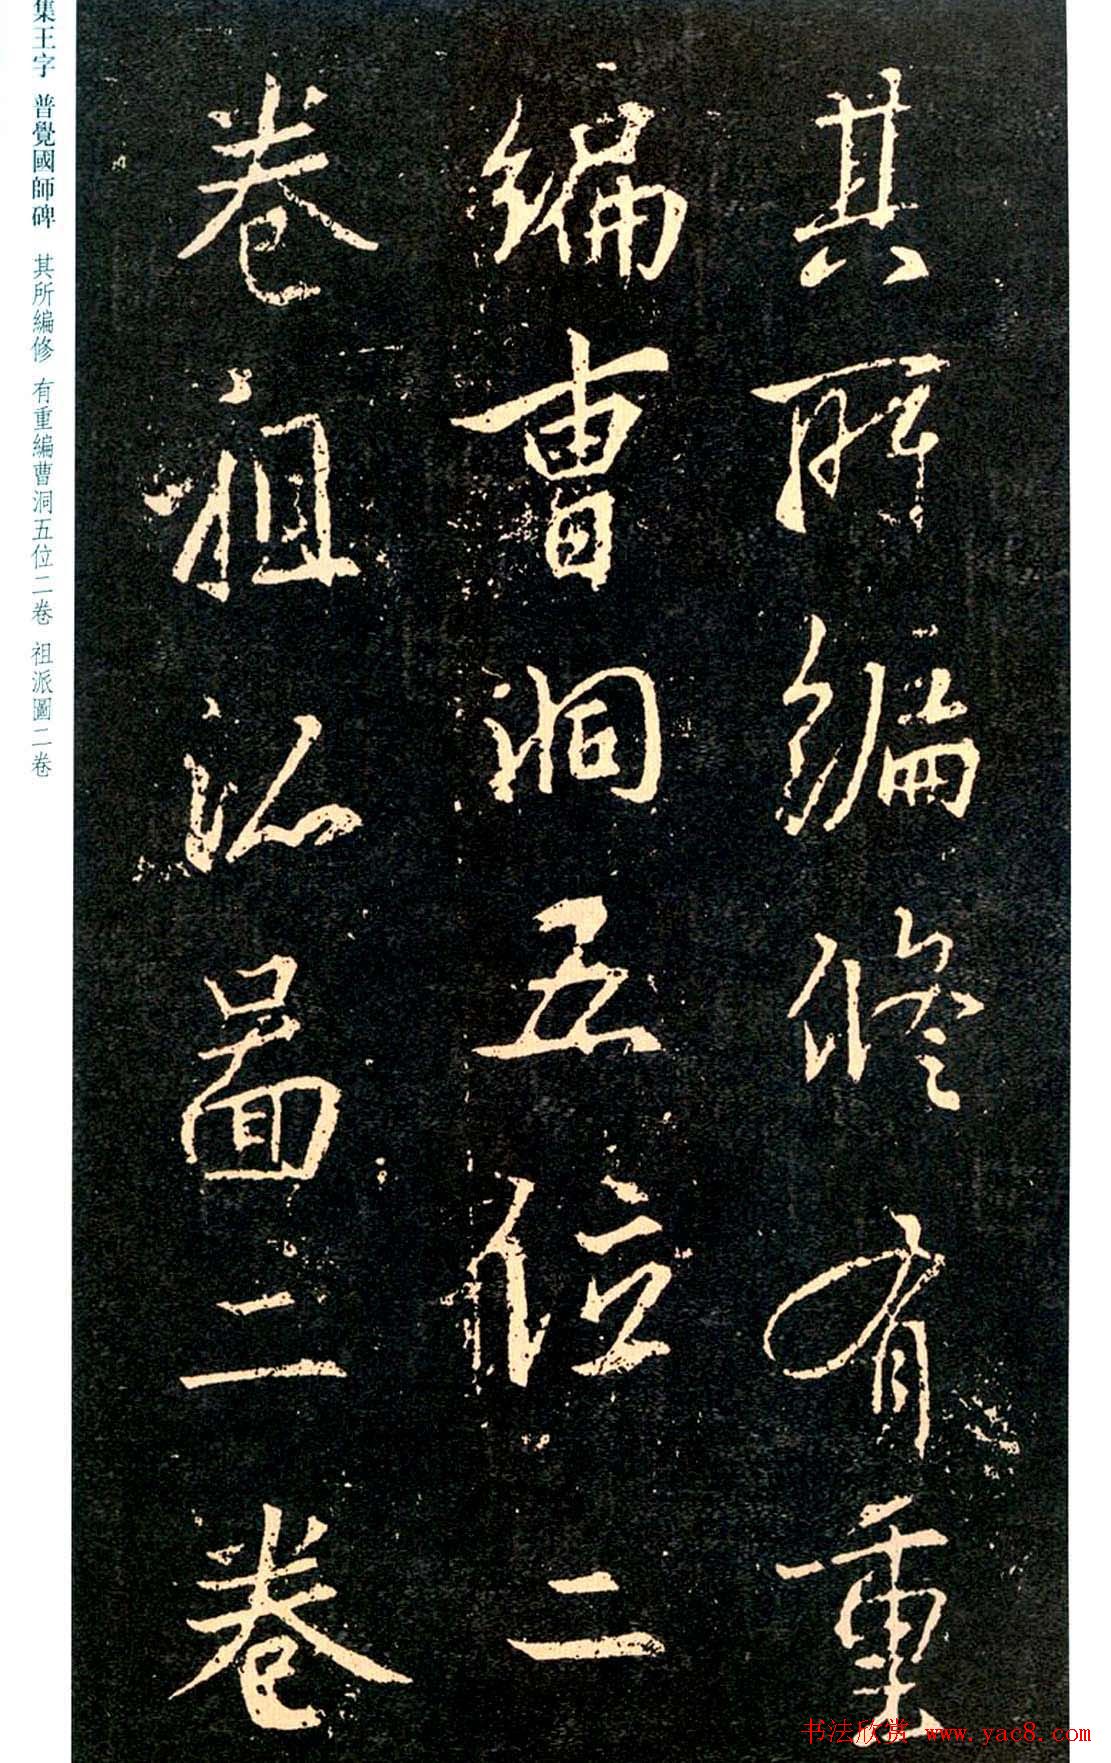 其所編修有重
編曹洞五位二
卷祖派圖二卷
集王字 普覺國師碑 其所編修 有重編曹洞五位二卷 祖派圖二卷
书法欣赏 www.yac8.com